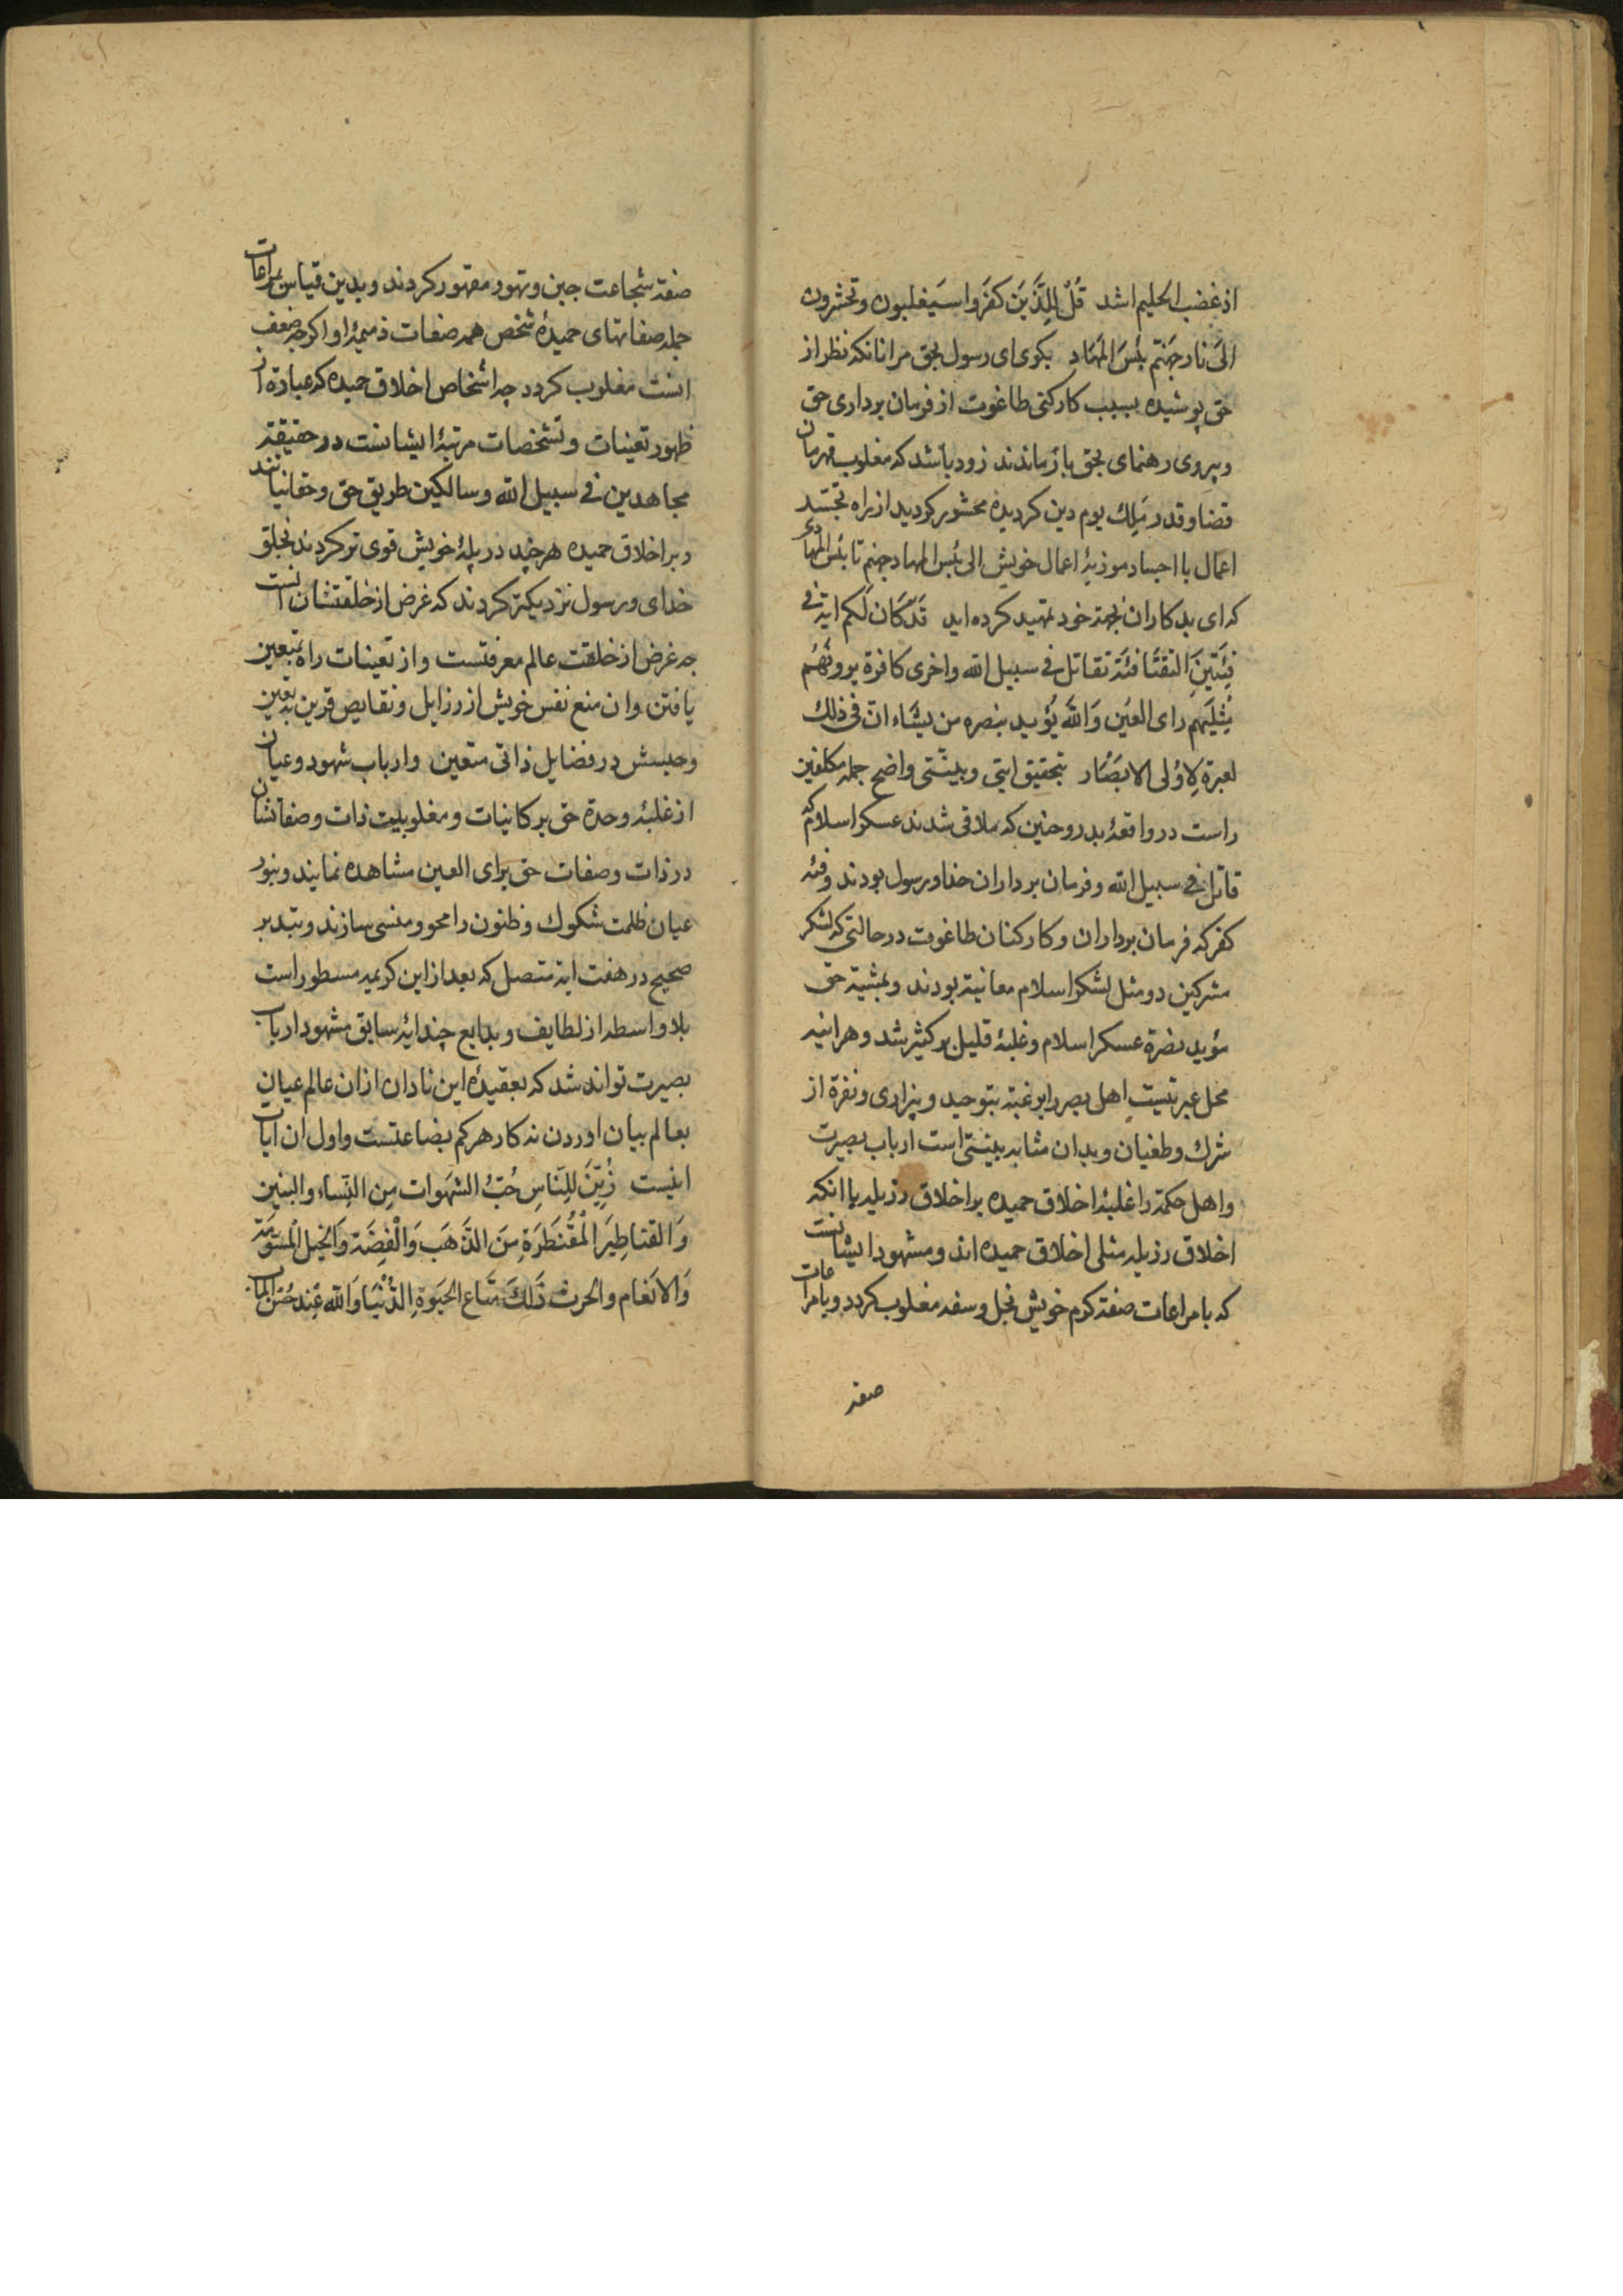 اذ غضب الحلیم اشد قُلْ لِلَّذینَ کَفَرَوا سَیَغلبون وتحشرون
الَی نار جَهَنّم بئسَ المَهَاد بکوی ای رسول بحق مر انانکه نظر از
حق پوشیده بسبب کارکنی طاغوت از فرمان برداری حق
وپیروی رهنمای بحق بازماندند زود باشد که مغلوب قهرمان
قضا وقدر مَلِك یوم دین کردیده محشور کردید از راه تجسّد
اعمال با اجساد موذیهٔ اعمال خویش الی بئس المهاد جهنم تا بئس المهادی
که ای بدکاران بجهة خود تمهید کرده اید قَدْ کَان لَکم ایة فی
فِئَتَینَ التقتَا فئة تقاتل فی سبیل الله واخری کافرة یرونَهُم
مِثلیَهِم رای العیَن وَالله یُؤید بنصره من یشاء ان فی ذلك
لعبرة لاِوُلی الابصَار بتحقیق ایتی وبینتی واضح جمله مکلفین
راست در واقعهٔ بدر وحنین که ملاقی شدند عسکر اسلام که
قاتل فی سبیل الله وفرمان برداران خدا ورسول بودند وفئه
کفر که فرمان برداران وکارکنان طاغوت در حالتی که لشکر
مشرکین دو مثل لشکر اسلام معاینة بودند وبمشیة حق
مؤید نصرة عسکر اسلام وغلبهٔ قلیل بر کثیر شد وهراینه
محل عبرتیست اهل بصر را برغبة بتوحید وبیزاری ونفرة از
شرك وطغیان وبدان مثابه بینتی است ارباب بصیرت
واهل حکمة را غلبهٔ اخلاق حمیده بر اخلاق رذیله با انکه
اخلاق رذیله مثلی اخلاق حمیده اند ومشهود ایشانست
که با مراعات صفة کرم خویش بخل وسفه مغلوب کردد وبا مراعات
صفة
صفة شجاعت جبن وتهور مقهور کردند وبدین قیاس بمراعات
جمله صفاتهای حمیدهٔ شخص همه صفات ذمیمهٔ او اکرچه ضعف
انست مغلوب کردد چه اشخاص اخلاق حمیده که عبارة از
ظهور تعینات وتشخصات مرتبهٔ ایشانست در حقیقة
مجاهدین فی سبیل الله وسالکین طریق حق وحقانیانند
وبر اخلاق حمیده هر چند در پلهٔ خویش قوی تر کردند بخلق
خدای ورسول نزدیکتر کردند که غرض از خلقتشان انست
چه غرض از خلقت عالم معرفتست واز تعینات راه بتعین
یافتن وان منع نفس خویش از رزایل ونقایص قرین بتعین
وحبسش در فضایل ذاتی متعین وارباب شهود وعیان
از غلبهٔ وحدة حق بر کاینات ومغلوبیت ذات وصفاتشان
در ذات وصفات حق برای العین مشاهده نمایند وبنور
عیان ظلمت شکوك وظنون را محو ومنسی سازند وبتدبر
صحیح در هفت ایة متصل که بعد از این کریمه مسطور است
بلا واسطه از لطایف وبدایع چند ایهٔ سابق مشهود ارباب
بصیرت تواند شد که بعقیدهٔ این نادان از ان عالم عیان
بعالم بیان اوردن نه کار هر کم بضاعتست واول ان ایات
اینست زُیّنَ للِنّاسِ حُبّ الشهَوات مِن النِساء والبنین
وَالقناطِیَر المُقَنَطَرَةِ مِنَ الذَهَب وَالْفِضَة وَالخَیل المُسَوّمَة
وَالانَعام والحرث ذَلكَ مَتَاع الحَیَوةِ الدُنَیَا وَالله عِند حُسن المآب